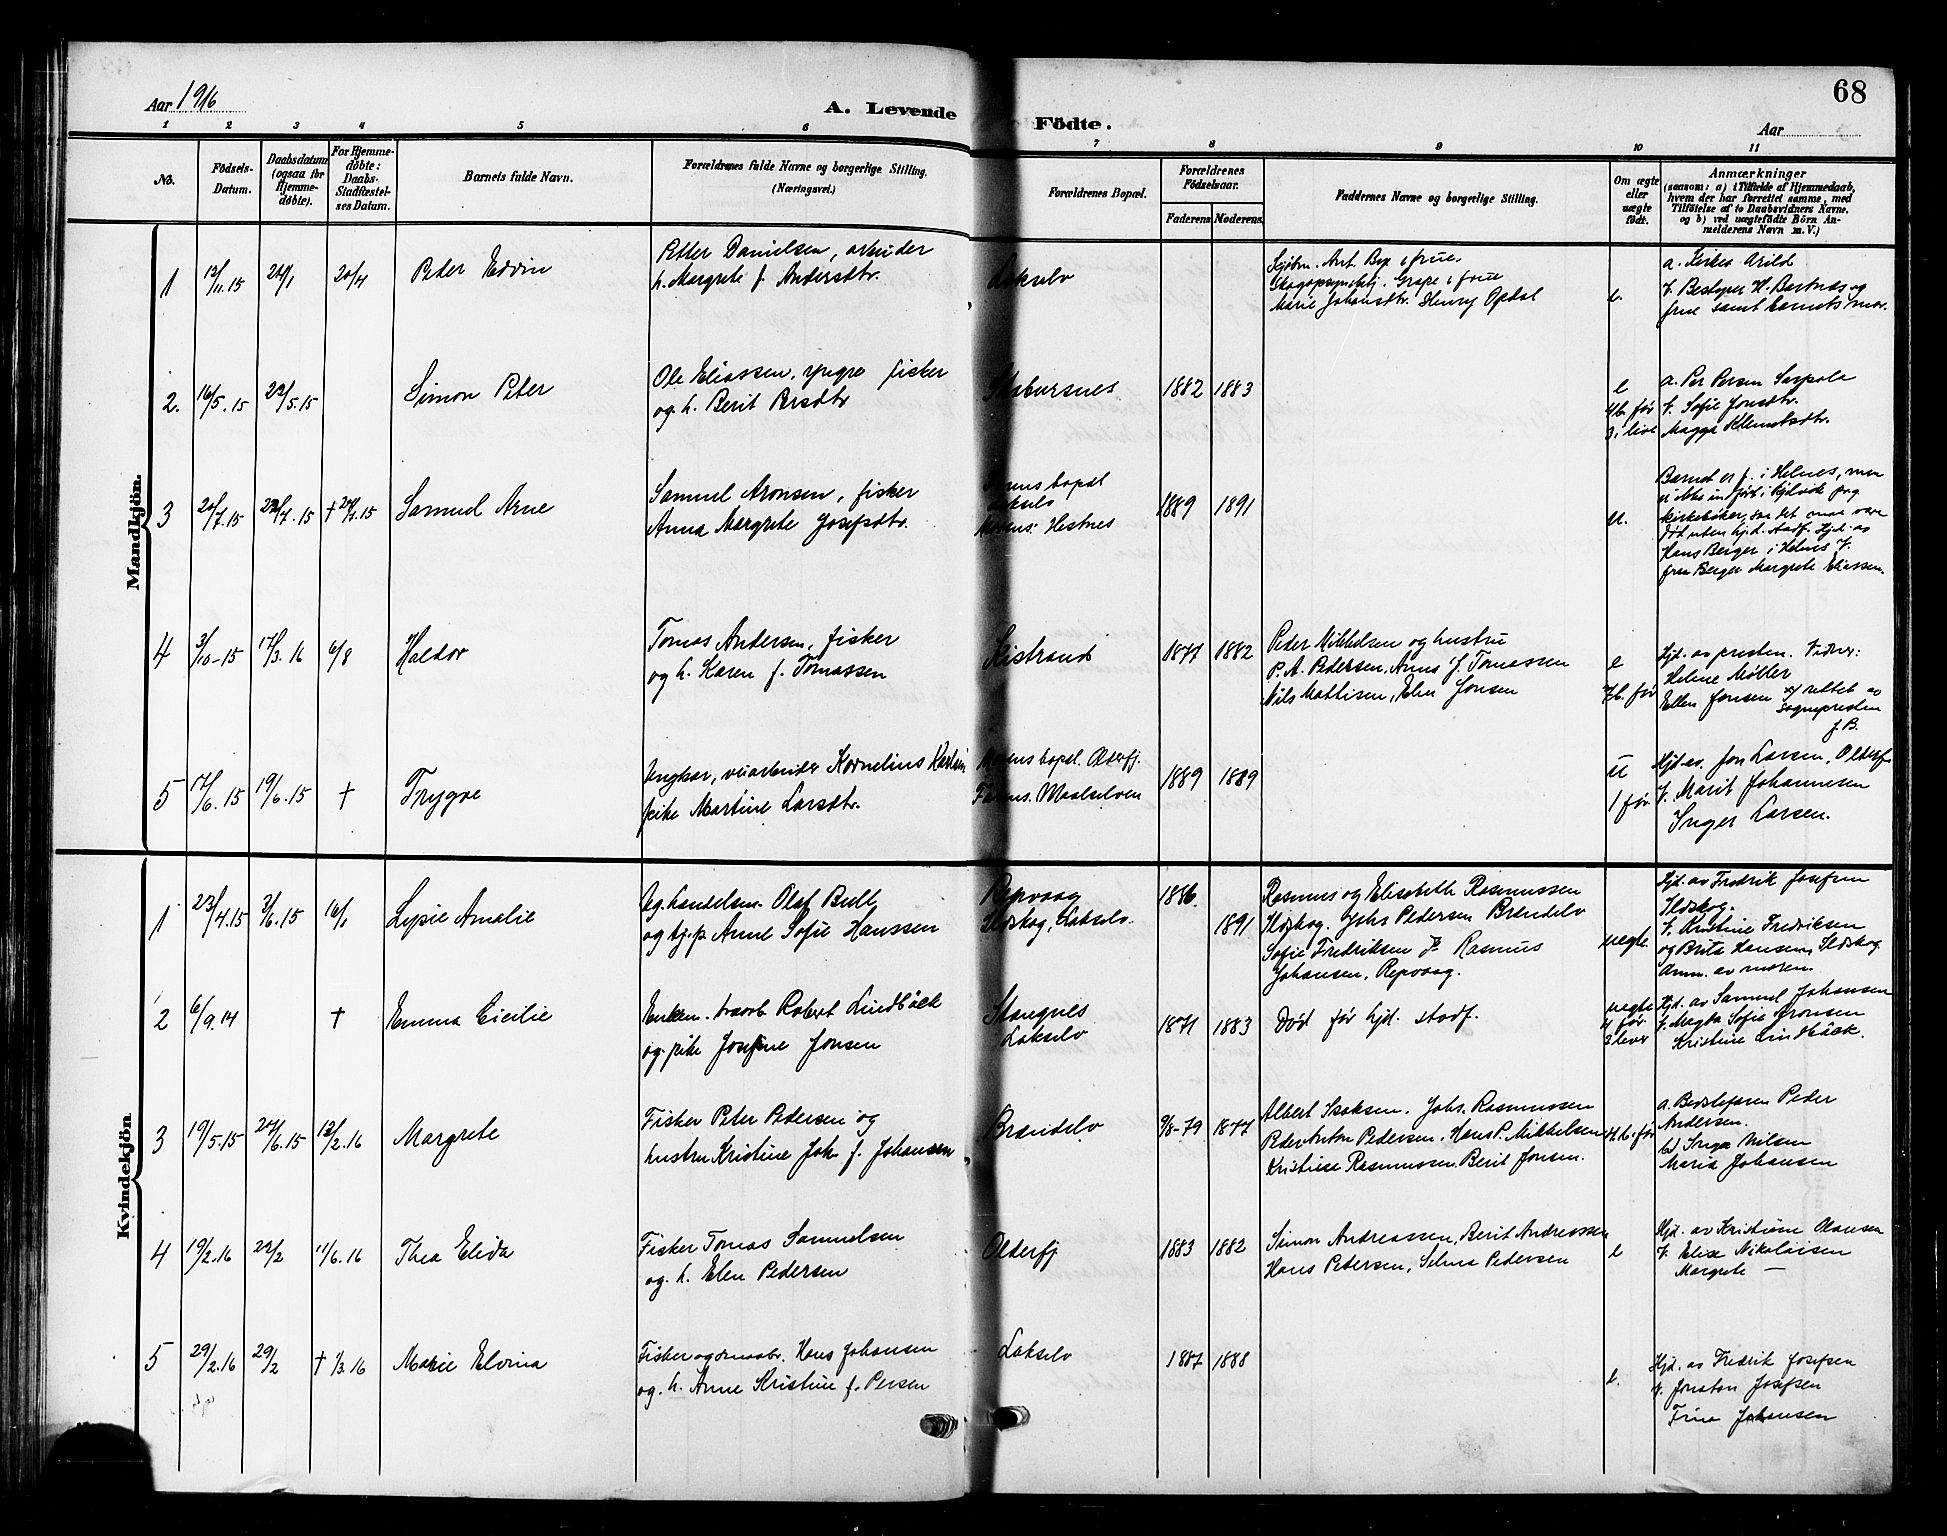 68
Aar 1916
A. Levende Födte.
Aar
1 2 3 4 5 6 7 8 9 10 11
No.
Födsels-Datum.
Daabsdatum (ogsaa for Hjemme-döbte).
For Hjemme-döbte: Daabs-Stadfæstel-ses Datum.
Barnets fulde Navn.
Forældrenes fulde Navne og borgerlige Stilling. (Næringsvei.)
Forældrenes Bopæl.
Forældrenes Födselsaar.
Faderens Moderens
Faddernes Navne og borgerlige Stilling.
Om ægte eller uægte födt.
Anmærkninger
(saasom: a) i Tilfælde af Hjemmedaab,
hvem der har forrettet samme, med
Tilföielse af to Daabsvidners Navne.
og b) ved uægtefödte Börn An-
melderens Navn m. V.)
Mandkjön.
1 13/11.15 Peder Edvin
Petter Danielsen, arbeider
h. Margrete f. Andersdtr.
Lakselv
Marie Johansdtr. Henry Opdal
e.
a. Kirkev Arild
V. Bestyrer H. Bertnes og
frue samt barnets mor.
2. 16/5.15 23/5.15 Simon Peter
Ole Eliassen, yngre fisker
og h. Berit Persdtr
Stabursnes 1882 1883
e
4 b. før
3 i live
a. Per Persen Sarpola
V. Sofie Jonsdtr.
Magga Klemetsdtr.
3 20/7.15 Samuel Arne
Samuel Aronsen, fisker
Anna Margrete Josefsdtr.
Farens bopæl
Lakselv
Morens: Hestnes
1889 1891
u.
Barnet er f. i Helnes, men
Hans Berger i Helnes V.
frua Berger Margrete Eliassen.
4 3/10-15 17/3.16 6/8 Haldor
Tomas Andersen, fisker
og h. Karen f. Tomassen
Kistrand 1877 1882
Peder Mikkelsen og hustru
P. A. Pedersen. Anna J. Tomassen
Nils Mattisen, Elen Jonsen
e
7 b. før
Hjd. av presten. Vidner:
Helene Møller
Ellen Jonsen rettet av
sognepresten
J.B.
5 17/6.15 19/6.15 † Trygve
Ungkar, veiarbeider Kornelius
pike Martine Larsdtr.
Morens bopæl. Olderfj.
Farens. Maalselven
1889 1889
u
1 før
Hjd. av. Jon Larsen, Olderfj
V. Marit Johannesen
Inger Larsen.
Kvindekjön
1 23/4.15 3/6.15 16/1 Lysie Amalie
Ug. handelsm. Olaf Bull
og tj.p. Anne Sofie Hanssen
Repvaag
Ildskog, Lakselv.
1886. 1891
Rasmus og Elisabeth Rasmussen
Ildskog. Johs Pedersen Brændelv
Sofie Fredriksen Rasmus
Johansen, Repvaag.
uegte.
Hjd. av Fredrik Josefsen
Ildskog.
V. Kristine Fredriksen
og Brita Hansen, Ildskog
Anm. av moren.
2 6/9.14 † Emma Cicilie
Enkem. Robert Lindbäck
og pike Josefine Jonsen
Stangnes
Lakselv
1871 1883
Død før hjd. stadf.
uegte
4 før
3 lever
Hjd. av Samuel Johansen
V. Magda Sofie Aronsen
Kristine Lindbäck.
3 19/5.15 20/6.15 13/2.16 Margrete
Fisker Peter Pedersen og
hustru Kristine Joh. f. Johansen
Brændelv 9/8-79 1877
Albert Isaksen. Johs. Rasmussen
Peder Anton Pedersen. Hans P. Mikkelsen
Kristine Rasmussen. Berit Jonsen.
4 b. før
a. Bedstefaren Peder
Andersen.
b) Inga Nilsen
Maria Johansen
4 19/2.16 22/2 11/6.16 Thea Elida
Fisker Tomas Samuelsen
og. h. Elen Pedersen
Olderfj 1883 1882
Simon Andreassen, Berit Andreassen
Hans Petersen, Selma Pedersen
e
Hjd. av Kristine Olausen
V. Elise Nikolaisen
Margrete —
5 29/2.16 29/2 † 1/3.16 Marie Elvina
Fisker og smaabr. Hans Johansen
og. h. Anne Kristine f. Persen
Lakselv 1887 1888
e.
Hjd. av Fredrik Josefsen
V. Jonatan Josefsen
Trina Johansen